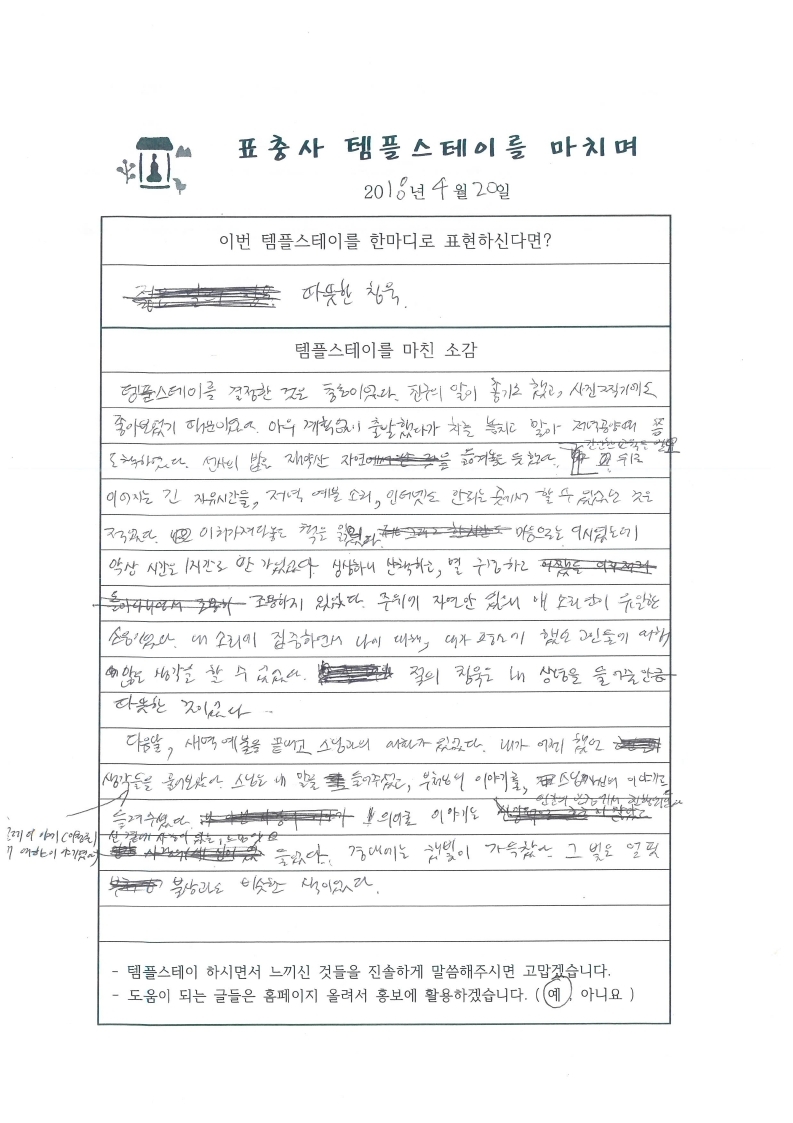 표충사 템플스테이를 마치며
2018년 4월 20일
이번 템플스테이를 한마디로 표현하신다면?
따뜻한 침묵.
템플스테이를 마친 소감
템플스테이를 결정한 것은 충동이었다. 친구의 말이 흥기도 했고, 사진 찍기에도
좋아보였기 때문이었다. 아무 계획없이 출발했다가 차를 놓치고 말아 저녁공양때 쯤
도착하였다. 산사의 밤은 재약산 자연을 듯 했다. 뒤로
간단한 교육을
이어지는 긴 자유시간을, 저녁 예불 소리, 인터넷도 안되는 곳에서 할 수 있는 것은
적었다. 이럴까 책을 읽었다. 마음으로 역시였는데
막상 시간은 1시간도 안 가있었다. 심심하니 산책하고, 별 구경하고
조용하지 있었다. 주위가 자연만 있으니 내 소리만이 유일한
소음이었다. 내 소리에 집중하면서 나에 대해, 내가 했던 고민들에 대해
많은 생각을 할 수 있었다. 절의 침묵은 내 상념을 들어줄만큼
따뜻한 것이었다.
다음날, 새벽 예불을 끝내고 스님과의 차담이 있었다. 내가 어제 했던
생각들을 물어보았다. 스님은 내 말을 들어주셨고, 부처님의 이야기를, 스님 이야기도
들려주셨다. 의외로 이야기도
들었다. 경내에는 햇빛이 가득했다. 그 빛은 얼핏
불상과도 비슷한 색이었다.
- 템플스테이 하시면서 느끼신 것들을 진솔하게 말씀해주시면 고맙겠습니다.
- 도움이 되는 글들은 홈페이지 올려서 홍보에 활용하겠습니다. ( 예 , 아니요 )